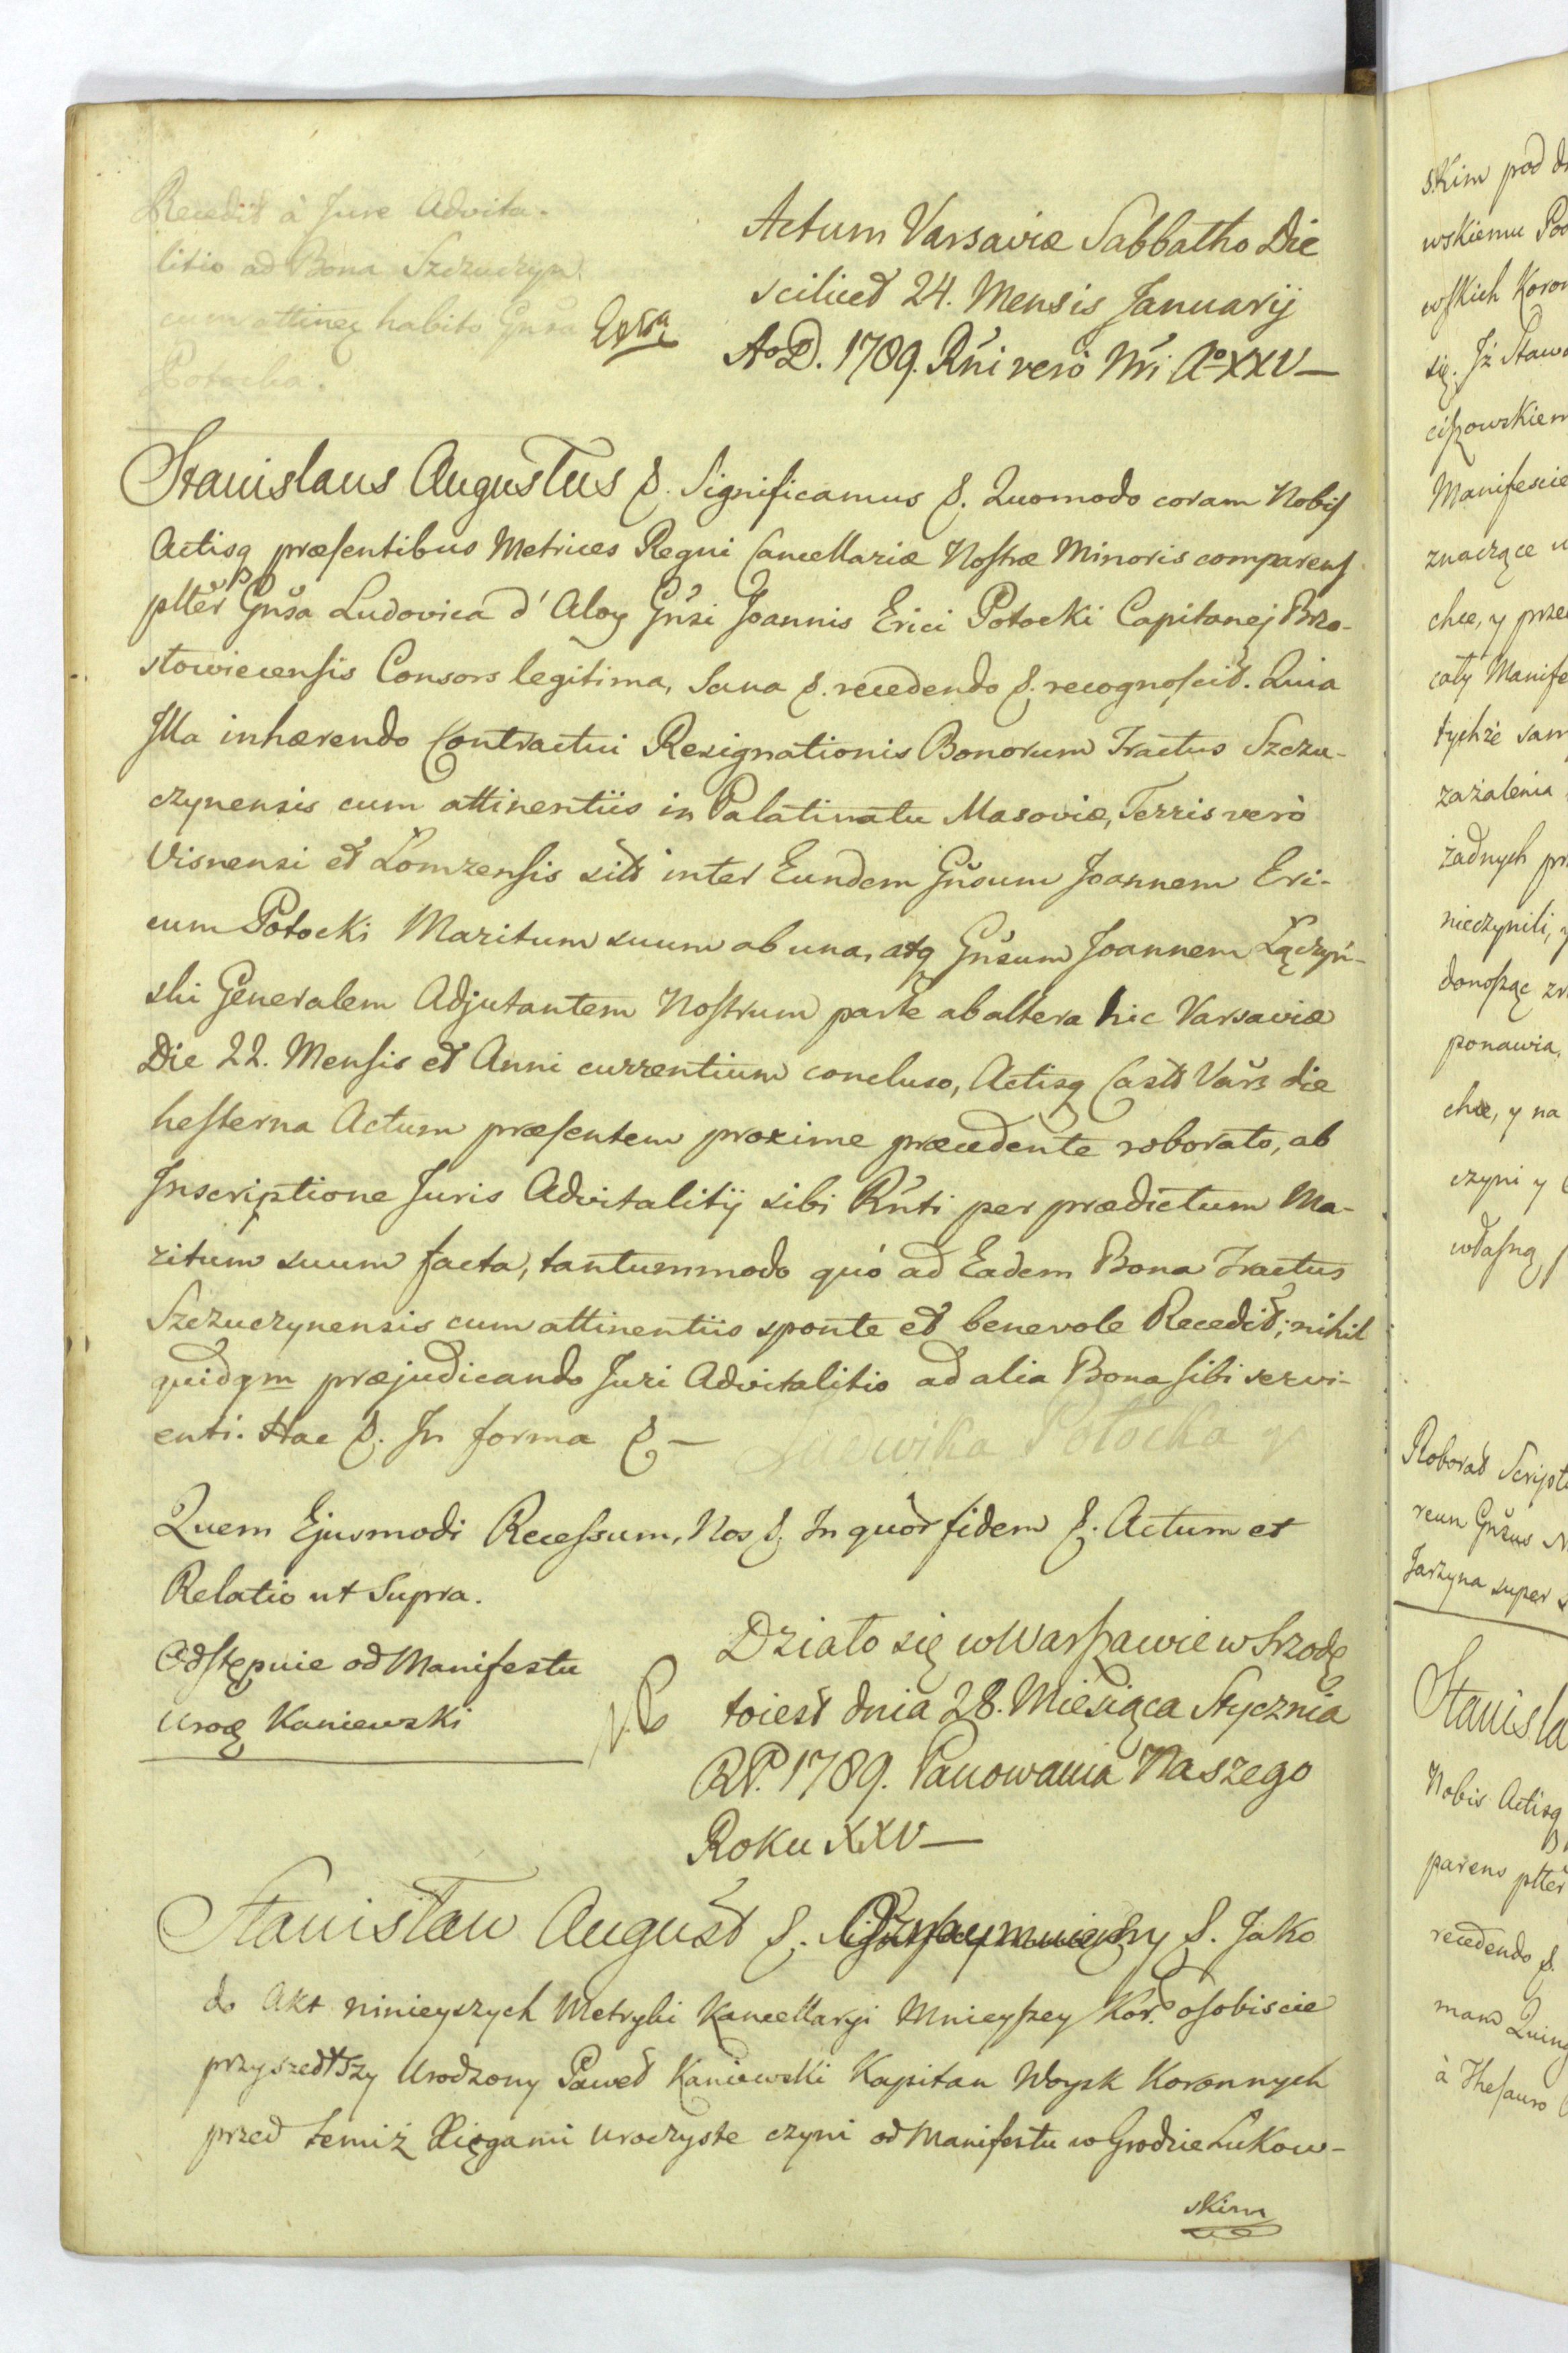 Recedit à Jure Advita-
litio ad Bona Szczuczyn
cum attinẽ habito Gnsa
Potocka.
Extra
Actum Varsaviæ Sabbatho Die
scilicet 24. Mensis Januarij
AoD. 1789. Rńi verò Nri Ao XXV—
Stanislaus Augustus &. Significamus &. Quomodo coram Nobis
Actisq præsentibus Metrices Regni Cancellariæ Nostræ Minoris comparens
plter Gnsa Ludovica d'Aloy Gnsi Joannis Erici Potocki Capitanej Brzo-
stowiecensis Consors legitima, Sana &. recedendo &. recognoscit. Quia
Illa inhærendo Contractui Resignationis Bonorum Tractus Szczu-
czynensis cum attinentiis in Palatinatu Masoviæ, Terris verò
Visnensi et Lomzensis sitt inter Eundem Gnsum Joannem Eri-
cum Potocki Maritum suum ab una, atq Gnsum Joannem Łączyń-
ski Generalem Adjutantem Nostrum parte ab altera hic Varsaviæ
Die 22. Mensis et Anni currentium concluso, Actisq Castt Varš die
hesterna Actum præsentem proxime præcedente roborato, ab
Inscriptione Juris Advitalitij sibi Rńti per prædictum Ma-
ritum suum facta, tantummodo quó ad Eadem Bona Tractus
Szczuczynensis cum attinentiis sponte et benevole Recedit; nihil
quidqm præjudicando Juri Advitalitio ad alia Bona sibi servi-
enti. Hac &. In forma &—
Ludwika Potocka
Quem Ejusmodi Recessum, Nos &. In quor fidem &. Actum et
Relatio ut Supra.
Odstępuie od Manifestu
Urog Kaniewski
Działo się w Warszawie w Srzodę
toiest dnia 28. Miesiąca Stycznia
RP. 1789. Panowania Naszego
Roku XXV—
Stanisław August &. &. Jako
do Akt ninieyszych Metryki Kancellaryi Mnieyszey Kor. osobiscie
przyszedłszy Urodzony Paweł Kaniewski Kapitan Woysk Koronnych
przed temiż Xięgami uroczyste czyni od Manifestu w Grodzie Łukow-
skim
skim pod
wskiemu
ewskich
się. Jż
ciszowskiem
Manifescie
znaczące
chce, y
cały
tychże
zażalenia
żadnych
nieczynili,
donosząc
ponawia,
chce, y na
czyni y
własną
Roborat
reun Gnsus
Jarzyna super
Nobis Actisq
parens plter
recedendo &.
à Thesauro